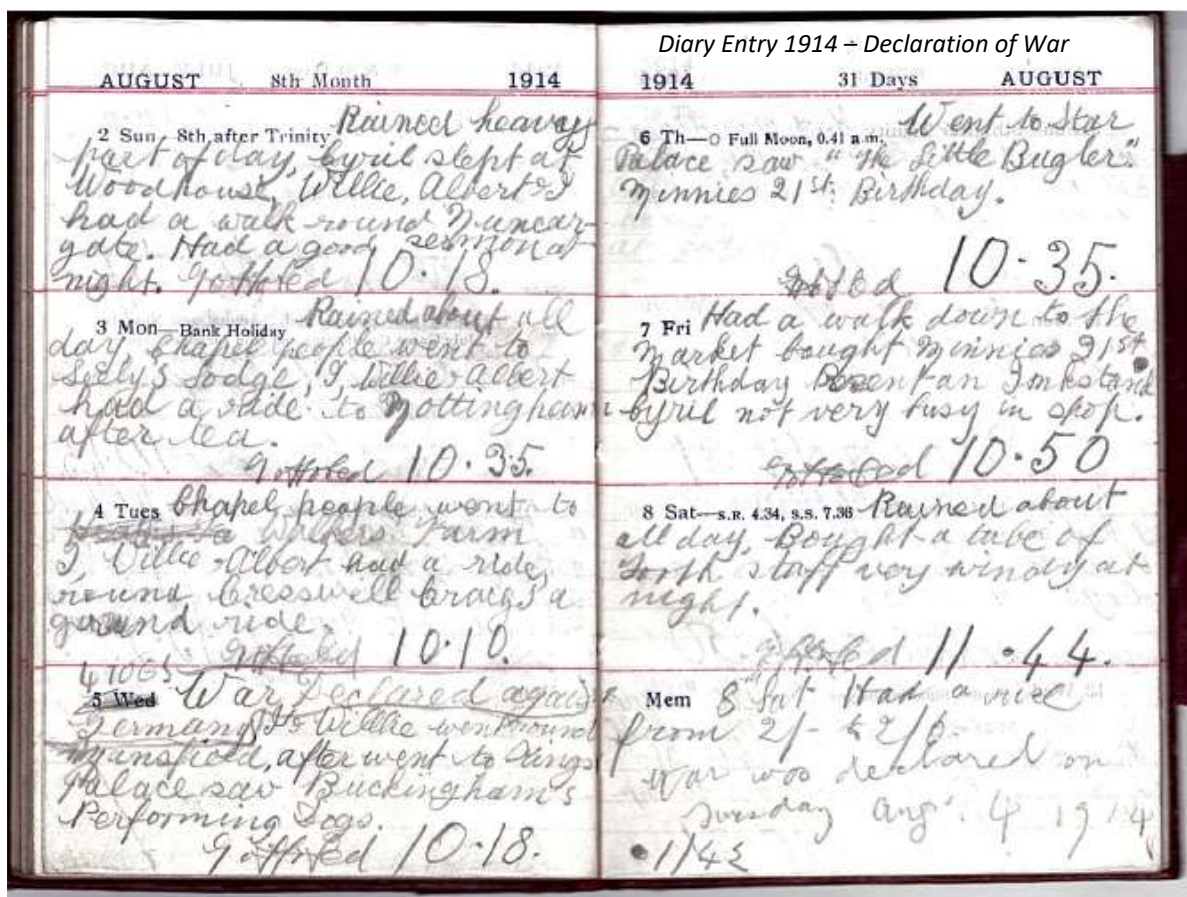 Diary Entry 1914 – Declaration of War
AUGUST 8th Month 1914
2 Sun—8th after Trinity Rained heavy
part of day, Cyril slept at
Woodhouse, Willie, Albert & I
had a walk round Nuncar-
gate. Had a good sermon at
night. Got to bed 10.18.
3 Mon—Bank Holiday Rained about all
day, Chapel people went to
Seely's Lodge, I, Willie Albert
had a ride to Nottingham
after tea.
Got to bed 10.35.
4 Tues Chapel people went to
Walkers Farm
I, Willie Albert had a ride
round Cresswell Craigs a
ground ride.
Got to bed 10.10.
4 TUES
5 Wed War Declared against
Germany I & Willie went round
Mansfield, after went to Kings
Palace saw Buckingham's
Performing Dogs.
Got to bed 10.18.
1914 31 Days AUGUST
6 Th—○ Full Moon, 0.41 a.m. Went to Star
Palace saw "The Little Bugler".
Minnies 21st Birthday.
Got to bed 10.35.
7 Fri Had a walk down to the
Market bought Minnies 21st
Birthday Present an Inkstand
Cyril not very busy in shop.
Got to bed 10.50
8 Sat—S.R. 4.34, S.S. 7.36 Rained about
all day, Bought a tube of
Tooth stuff very windy at
night.
Got to bed 11.44.
Mem 8 Sat Had a rise
from 2/- to 2/6.
War was declared on
Tuesday Aug. 4 1914